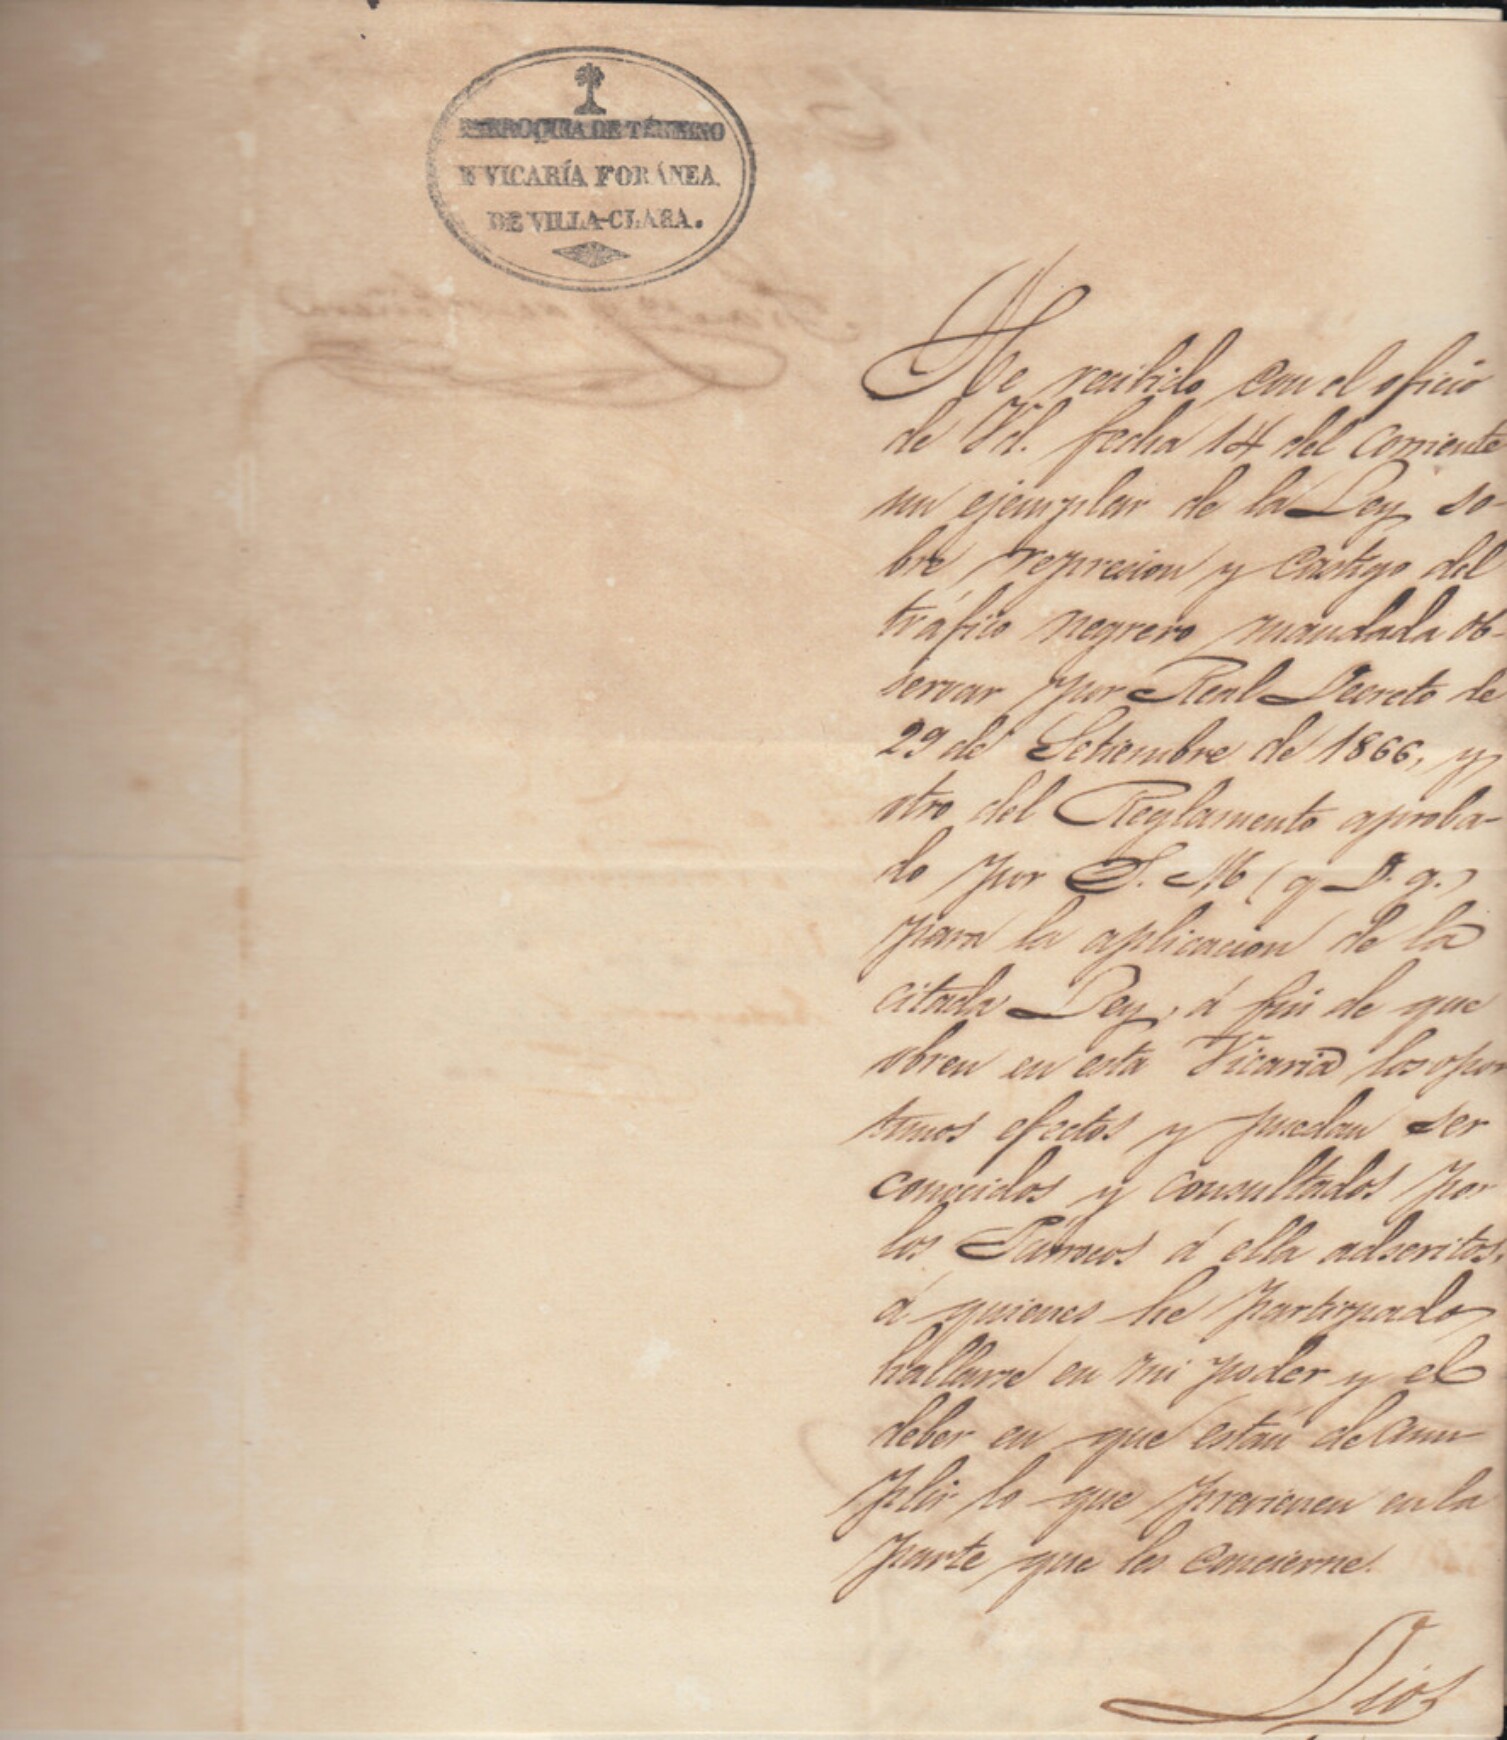 PARROQUIA DE TÉRMINO
E VICARÍA FORÁNEA
DE VILLA-CLARA.
He recibido con el oficio
de Vd. fecha 14 del corriente
un ejemplar de la Ley so-
bre represion y castigo del
tráfico negrero mandada ob-
servar por Real Decreto de
29 de Setiembre de 1866, y
otro del Reglamento aproba-
do por S. M (q D. g.)
para la aplicacion de la
citada Ley, á fin de que
obren en esta Vicaria los opor
tunos efectos y puedan ser
conocidos y consultados por
los Párrocos á ella adscritos,
á quienes he participado
hallarse en mi poder y el
deber en que están de cum-
plir lo que previenen en la
parte que les concierne.
Dios